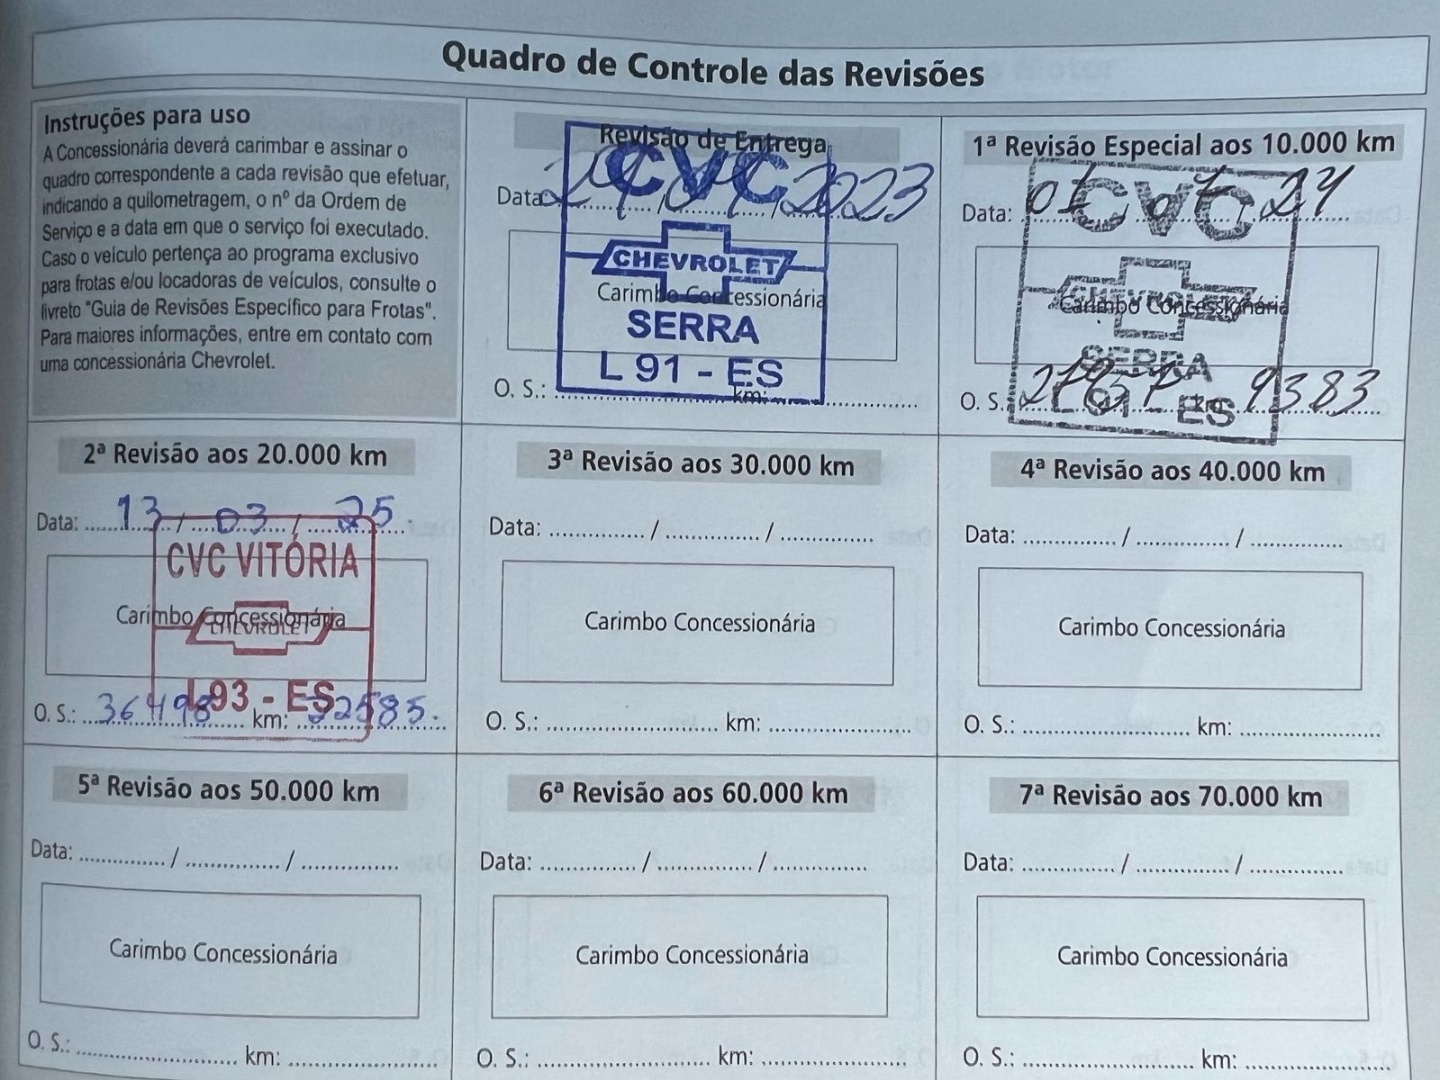 Quadro de Controle das Revisões
Instruções para uso
A Concessionária deverá carimbar e assinar o
quadro correspondente a cada revisão que efetuar,
indicando a quilometragem, o nº da Ordem de
Serviço e a data em que o serviço foi executado.
Caso o veículo pertença ao programa exclusivo
para frotas e/ou locadoras de veículos, consulte o
livreto "Guia de Revisões Específico para Frotas".
Para maiores informações, entre em contato com
uma concessionária Chevrolet.
Revisão de Entrega
CVC
Data: / / 2023
CHEVROLET
Carimbo Concessionária
SERRA
L 91 - ES
O. S.: km:
1ª Revisão Especial aos 10.000 km
CVC
Data: 24
CHEVROLET
Carimbo Concessionária
SERRA
L 91 - ES
O. S.: km: 9383
2ª Revisão aos 20.000 km
Data: 13 / 03 / 25
CVC VITÓRIA
Carimbo Concessionária
CHEVROLET
L93 - ES
O. S.: 36498 km: 22585
3ª Revisão aos 30.000 km
Data: / /
Carimbo Concessionária
O. S.: km:
4ª Revisão aos 40.000 km
Data: / /
Carimbo Concessionária
O. S.: km:
5ª Revisão aos 50.000 km
Data: / /
Carimbo Concessionária
O. S.: km:
6ª Revisão aos 60.000 km
Data: / /
Carimbo Concessionária
O. S.: km:
7ª Revisão aos 70.000 km
Data: / /
Carimbo Concessionária
O. S.: km: